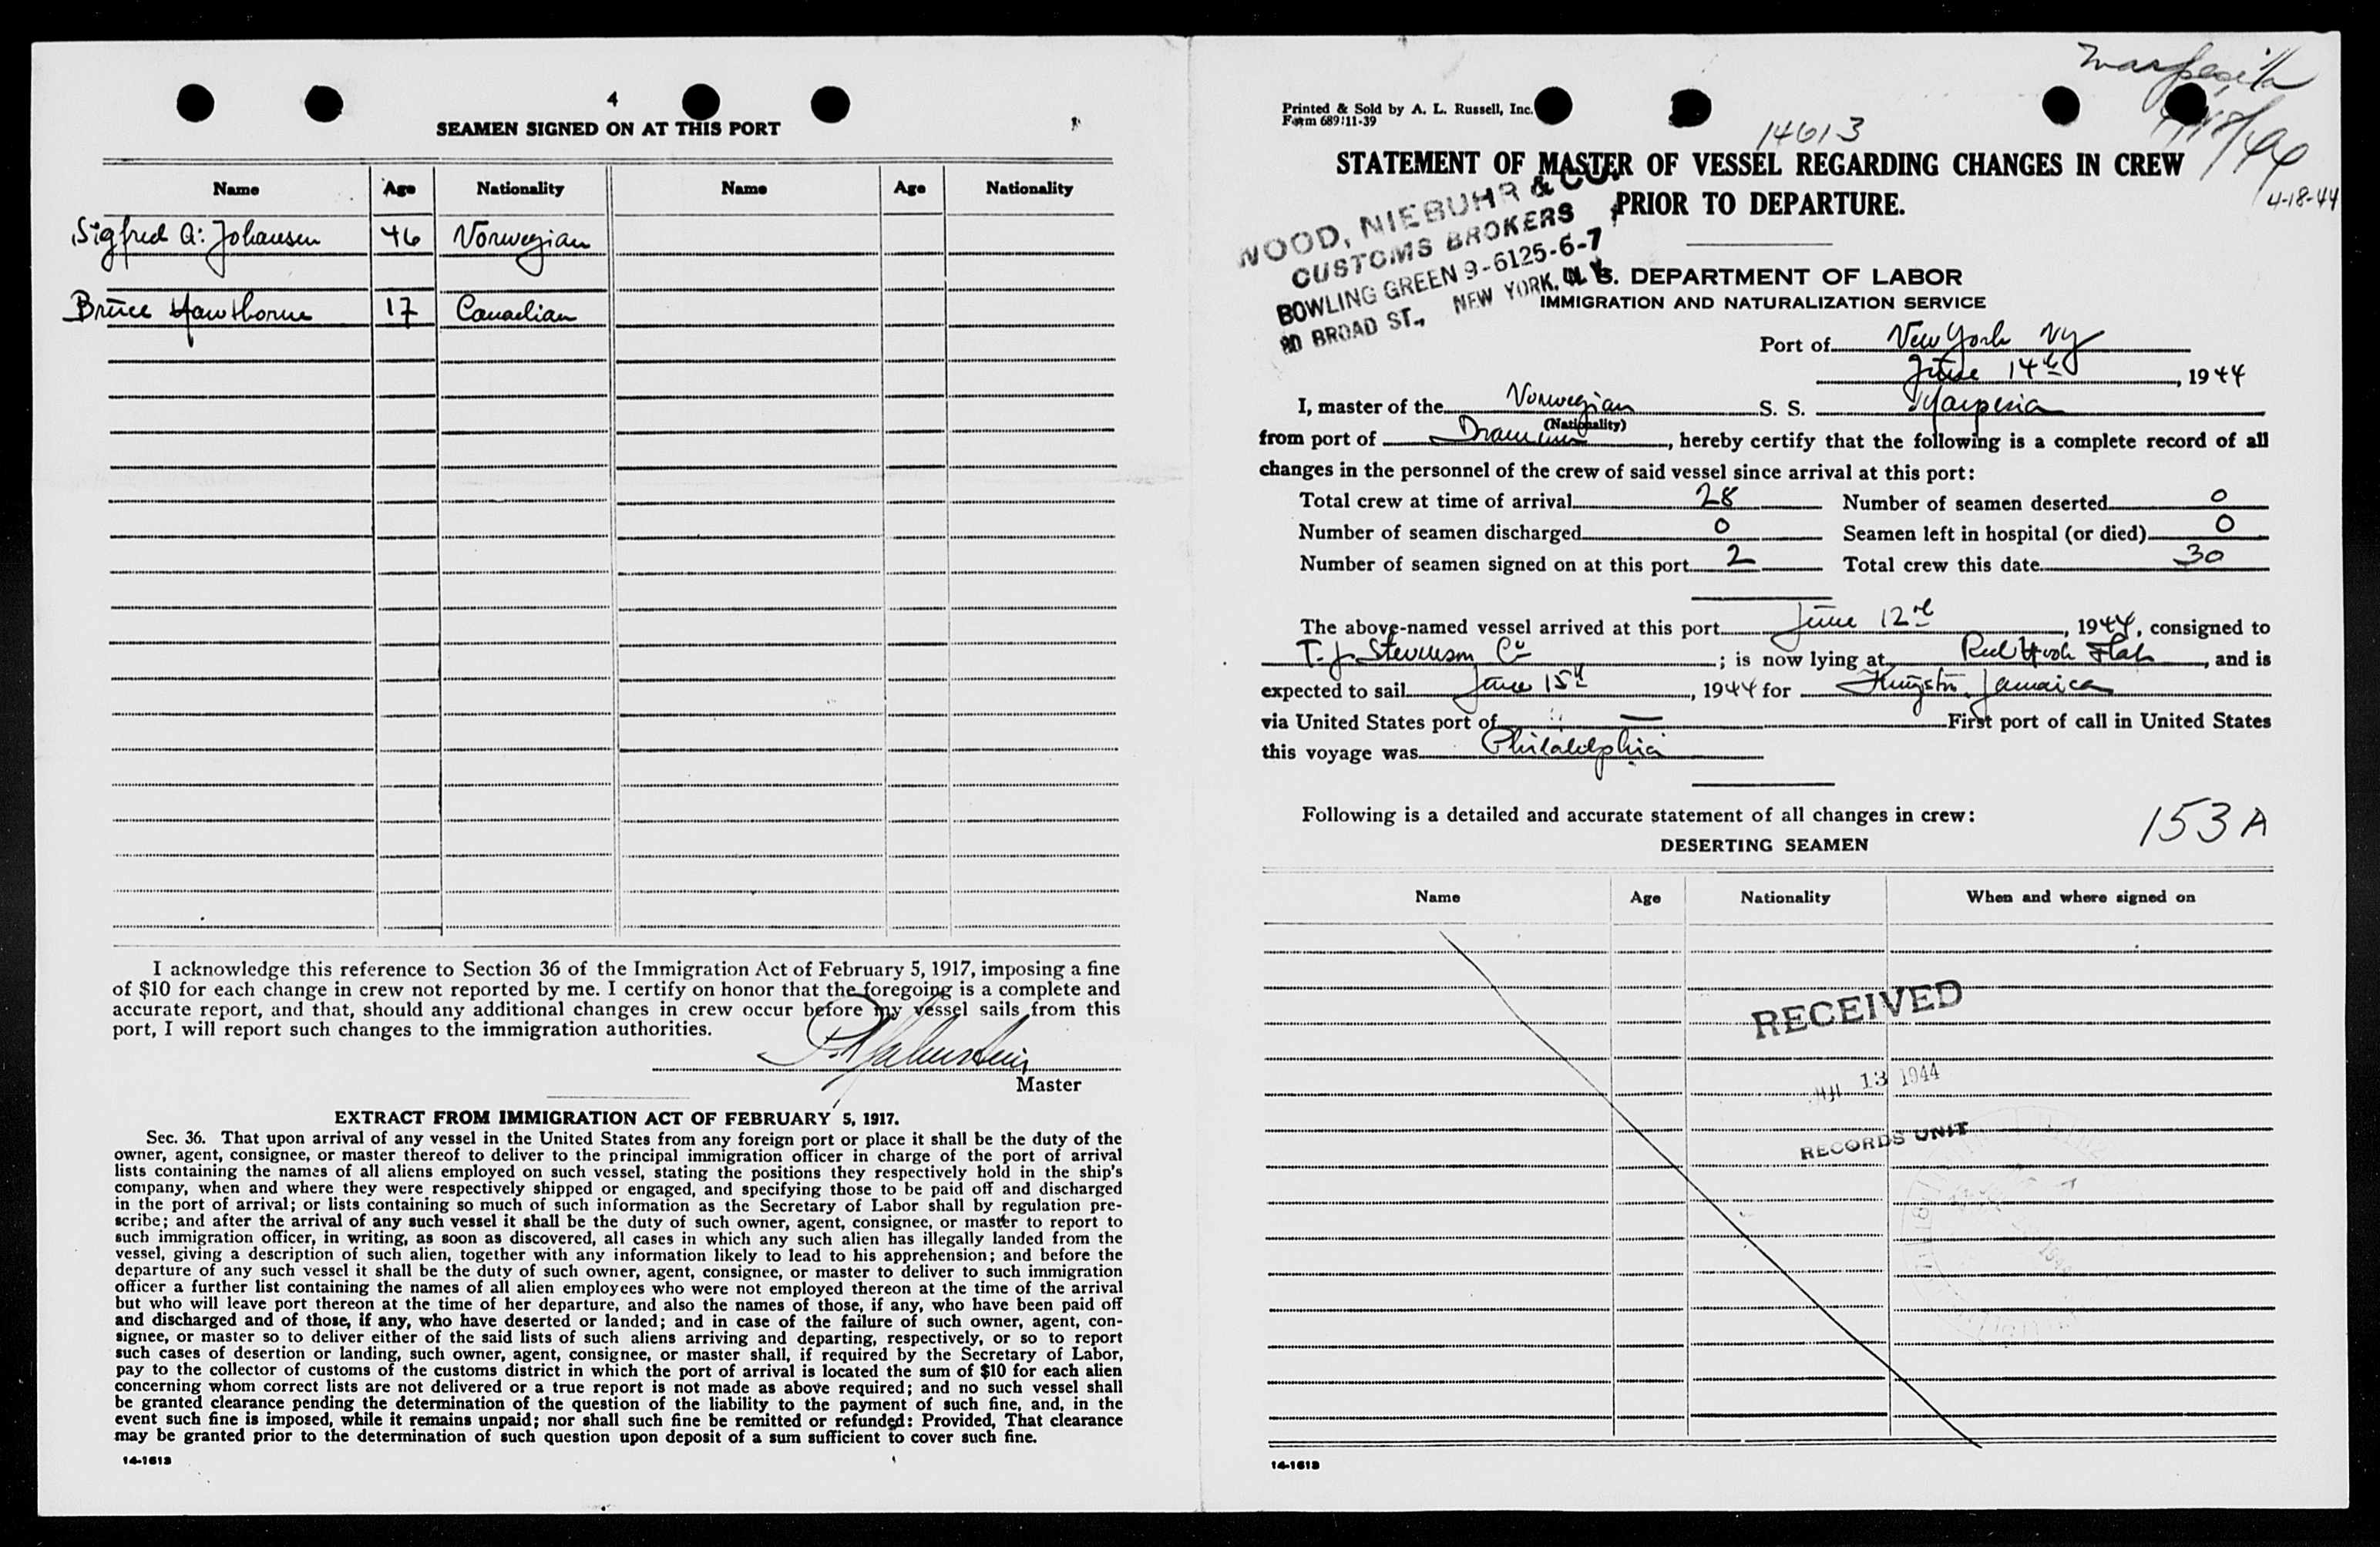 4
SEAMEN SIGNED ON AT THIS PORT
Name Age Nationality Name Age Nationality
Sigfred A. Johansen 46 Norwegian
Bruce Hawthorne 17 Canadian
I acknowledge this reference to Section 36 of the Immigration Act of February 5, 1917, imposing a fine
of $10 for each change in crew not reported by me. I certify on honor that the foregoing is a complete and
accurate report, and that, should any additional changes in crew occur before my vessel sails from this
port, I will report such changes to the immigration authorities.
Master
EXTRACT FROM IMMIGRATION ACT OF FEBRUARY 5, 1917.
Sec. 36. That upon arrival of any vessel in the United States from any foreign port or place it shall be the duty of the
owner, agent, consignee, or master thereof to deliver to the principal immigration officer in charge of the port of arrival
lists containing the names of all aliens employed on such vessel, stating the positions they respectively hold in the ship's
company, when and where they were respectively shipped or engaged, and specifying those to be paid off and discharged
in the port of arrival; or lists containing so much of such information as the Secretary of Labor shall by regulation pre-
scribe; and after the arrival of any such vessel it shall be the duty of such owner, agent, consignee, or master to report to
such immigration officer, in writing, as soon as discovered, all cases in which any such alien has illegally landed from the
vessel, giving a description of such alien, together with any information likely to lead to his apprehension; and before the
departure of any such vessel it shall be the duty of such owner, agent, consignee, or master to deliver to such immigration
officer a further list containing the names of all alien employees who were not employed thereon at the time of the arrival
but who will leave port thereon at the time of her departure, and also the names of those, if any, who have been paid off
and discharged and of those, if any, who have deserted or landed; and in case of the failure of such owner, agent, con-
signee, or master so to deliver either of the said lists of such aliens arriving and departing, respectively, or so to report
such cases of desertion or landing, such owner, agent, consignee, or master shall, if required by the Secretary of Labor,
pay to the collector of customs of the customs district in which the port of arrival is located the sum of $10 for each alien
concerning whom correct lists are not delivered or a true report is not made as above required; and no such vessel shall
be granted clearance pending the determination of the question of the liability to the payment of such fine, and, in the
event such fine is imposed, while it remains unpaid; nor shall such fine be remitted or refunded: Provided, That clearance
may be granted prior to the determination of such question upon deposit of a sum sufficient to cover such fine.
14-1613
Printed & Sold by A. L. Russell, Inc.
Form 689 11-39
14613
4-18-44
STATEMENT OF MASTER OF VESSEL REGARDING CHANGES IN CREW
PRIOR TO DEPARTURE.
WOOD, NIEBUHR & CO.
CUSTOMS BROKERS
BOWLING GREEN 9-6125-6-7
80 BROAD ST., NEW YORK, N. Y.
U. S. DEPARTMENT OF LABOR
IMMIGRATION AND NATURALIZATION SERVICE
Port of New York NY
June 14th, 1944
I, master of the Norwegian S. S. Marpesia
(Nationality)
from port of Drammen, hereby certify that the following is a complete record of all
changes in the personnel of the crew of said vessel since arrival at this port:
Total crew at time of arrival 28 Number of seamen deserted 0
Number of seamen discharged 0 Seamen left in hospital (or died) 0
Number of seamen signed on at this port 2 Total crew this date 30
The above-named vessel arrived at this port June 12, 1944, consigned to
T. J. Stevenson Co; is now lying at Red Hook Flats, and is
expected to sail June 15th, 1944 for Kingston Jamaica
via United States port of — First port of call in United States
this voyage was Philadelphia
Following is a detailed and accurate statement of all changes in crew:
153 A
DESERTING SEAMEN
Name Age Nationality When and where signed on
RECEIVED
13 1944
RECORDS UNIT
14-1613